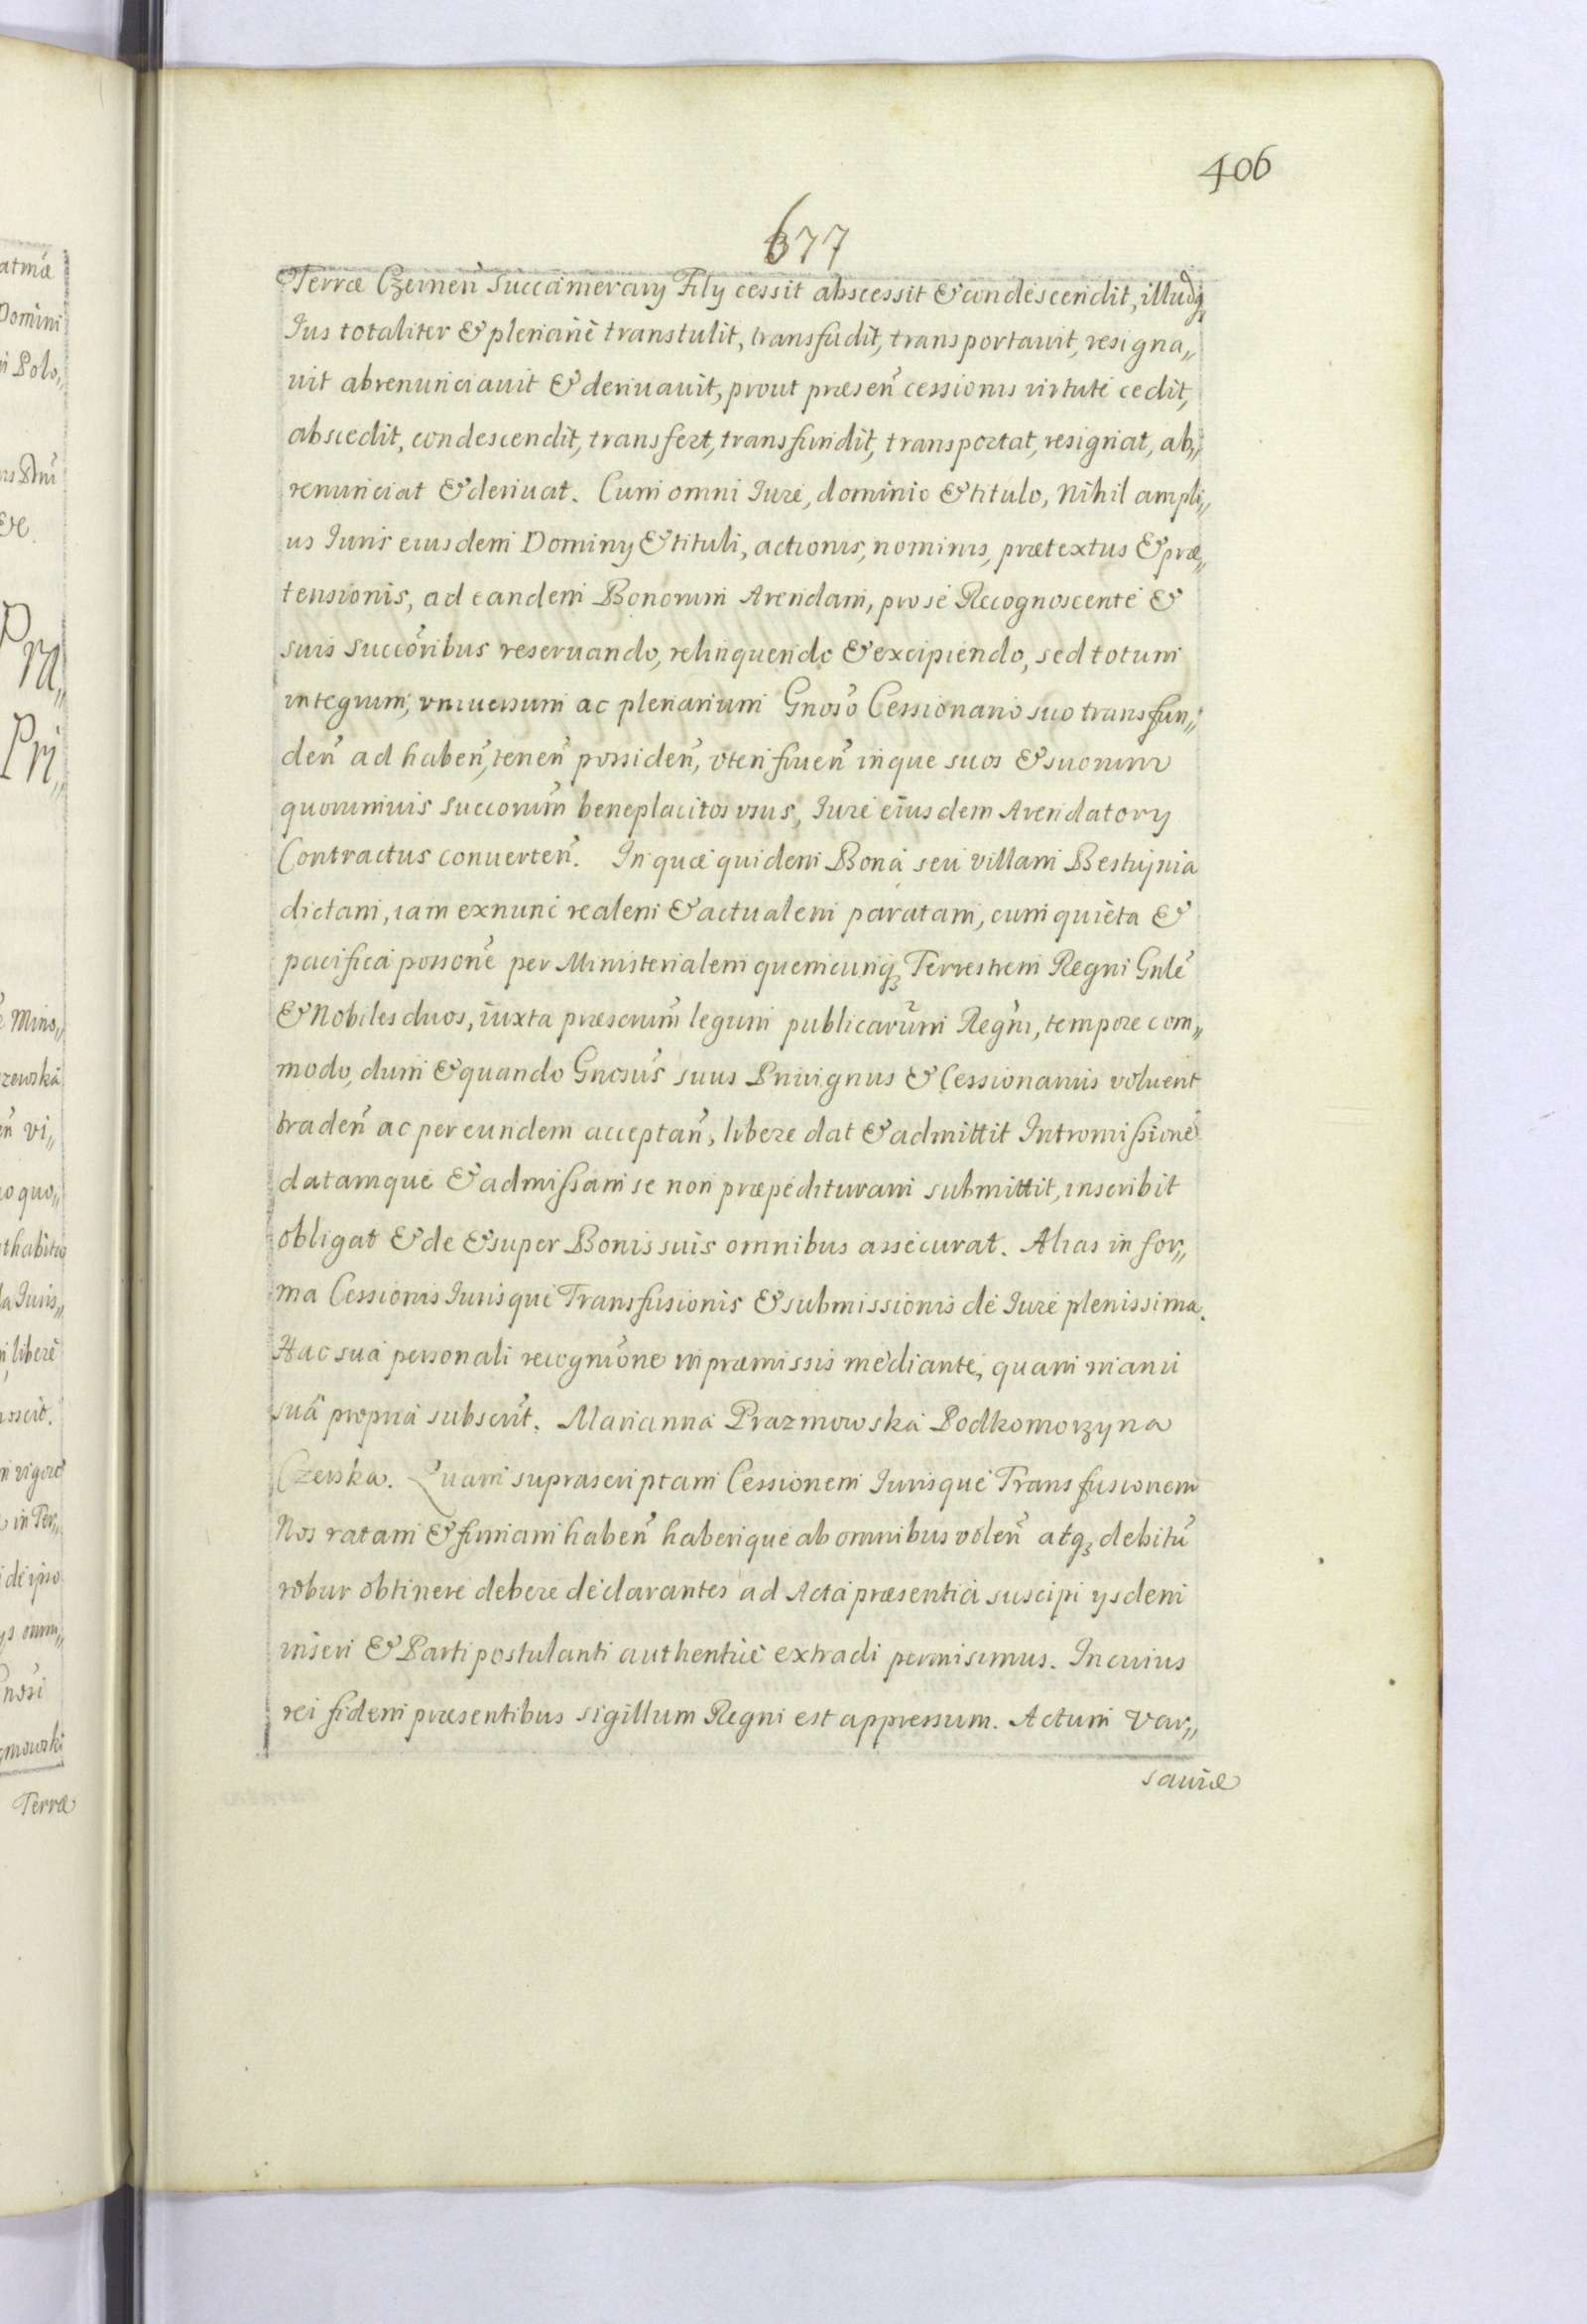 406
677
Terræ Czernen̄ Succamerarij Filij cessit abscessit & condescendit, illudq̨
Ius totaliter & plenariè transtulit, transfudit, transportavit, resigna„
vit abrenunciavit & derivavit, prout præsen̄ cessionis virtute cedit,
abscedit, condescendit, transfert, transfundit, transportat, resignat, ab„
renunciat & derivat. Cum omni Iure, dominio & titulo, Nihil ampli„
us Iuris eiusdem Dominij & tituli, actionis, nominis, prætextus & præ„
tensionis, ad eandem Bonorum Arendam, pro se Recognoscente &
suis succoribus reservando, relinquendo & excipiendo, sed totum
integrum, vniversum ac plenarium Gnoso Cessionario suo transfun„
den̄ ad haben̄, tenen̄ possiden̄, vten fruen̄ inque suos & suorum
quorumvis succorum̄ beneplacitos vsus, Iure eiusdem Arendatorij
Contractus converten̄. In quæ quidem Bona seu villam Bestvjnia
dictam, iam exnunc realem & actualem paratam, cum quieta &
pacifica possone per Ministerialem quemcunq̨ Terrestrem Regni Gnle
& Nobiles duos, iuxta præscrum̄ legum publicarum Regni, tempore com„
modo, dum & quando Gnosus suus Privignus & Cessionarius voluerit
traden̄ ac per eundem acceptan̄, libere dat & admittit Intromissione
datamque & admissam se non præpedituram submittit, inscribit
obligat & de & super Bonis suis omnibus assecurat. Alias in for„
ma Cessionis Iurisque Transfusionis & submissionis de Iure plenissima.
Hac sua personali recognione in præmissis mediante, quam manu
suâ propria subscrit. Marianna Prazmowska Podkomorzyna
Czerska. Quam suprascriptam Cessionem Iurisque Transfusionem
Nos ratam & firmam haben̄ haberique ab omnibus volen̄ atq̨ debitū
robur obtinere debere declarantes ad Acta præsentia suscipi ijsdem
inseri & Parti postulanti authentice extradi permisimus. In cuius
rei fidem præsentibus sigillum Regni est appressum. Actum Var„
saviæ